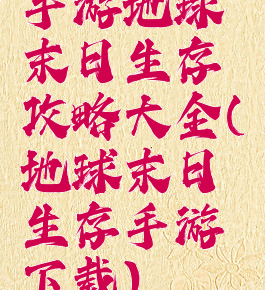 手游地球
末日生存
攻略大全(
地球末日
生存手游
下载)